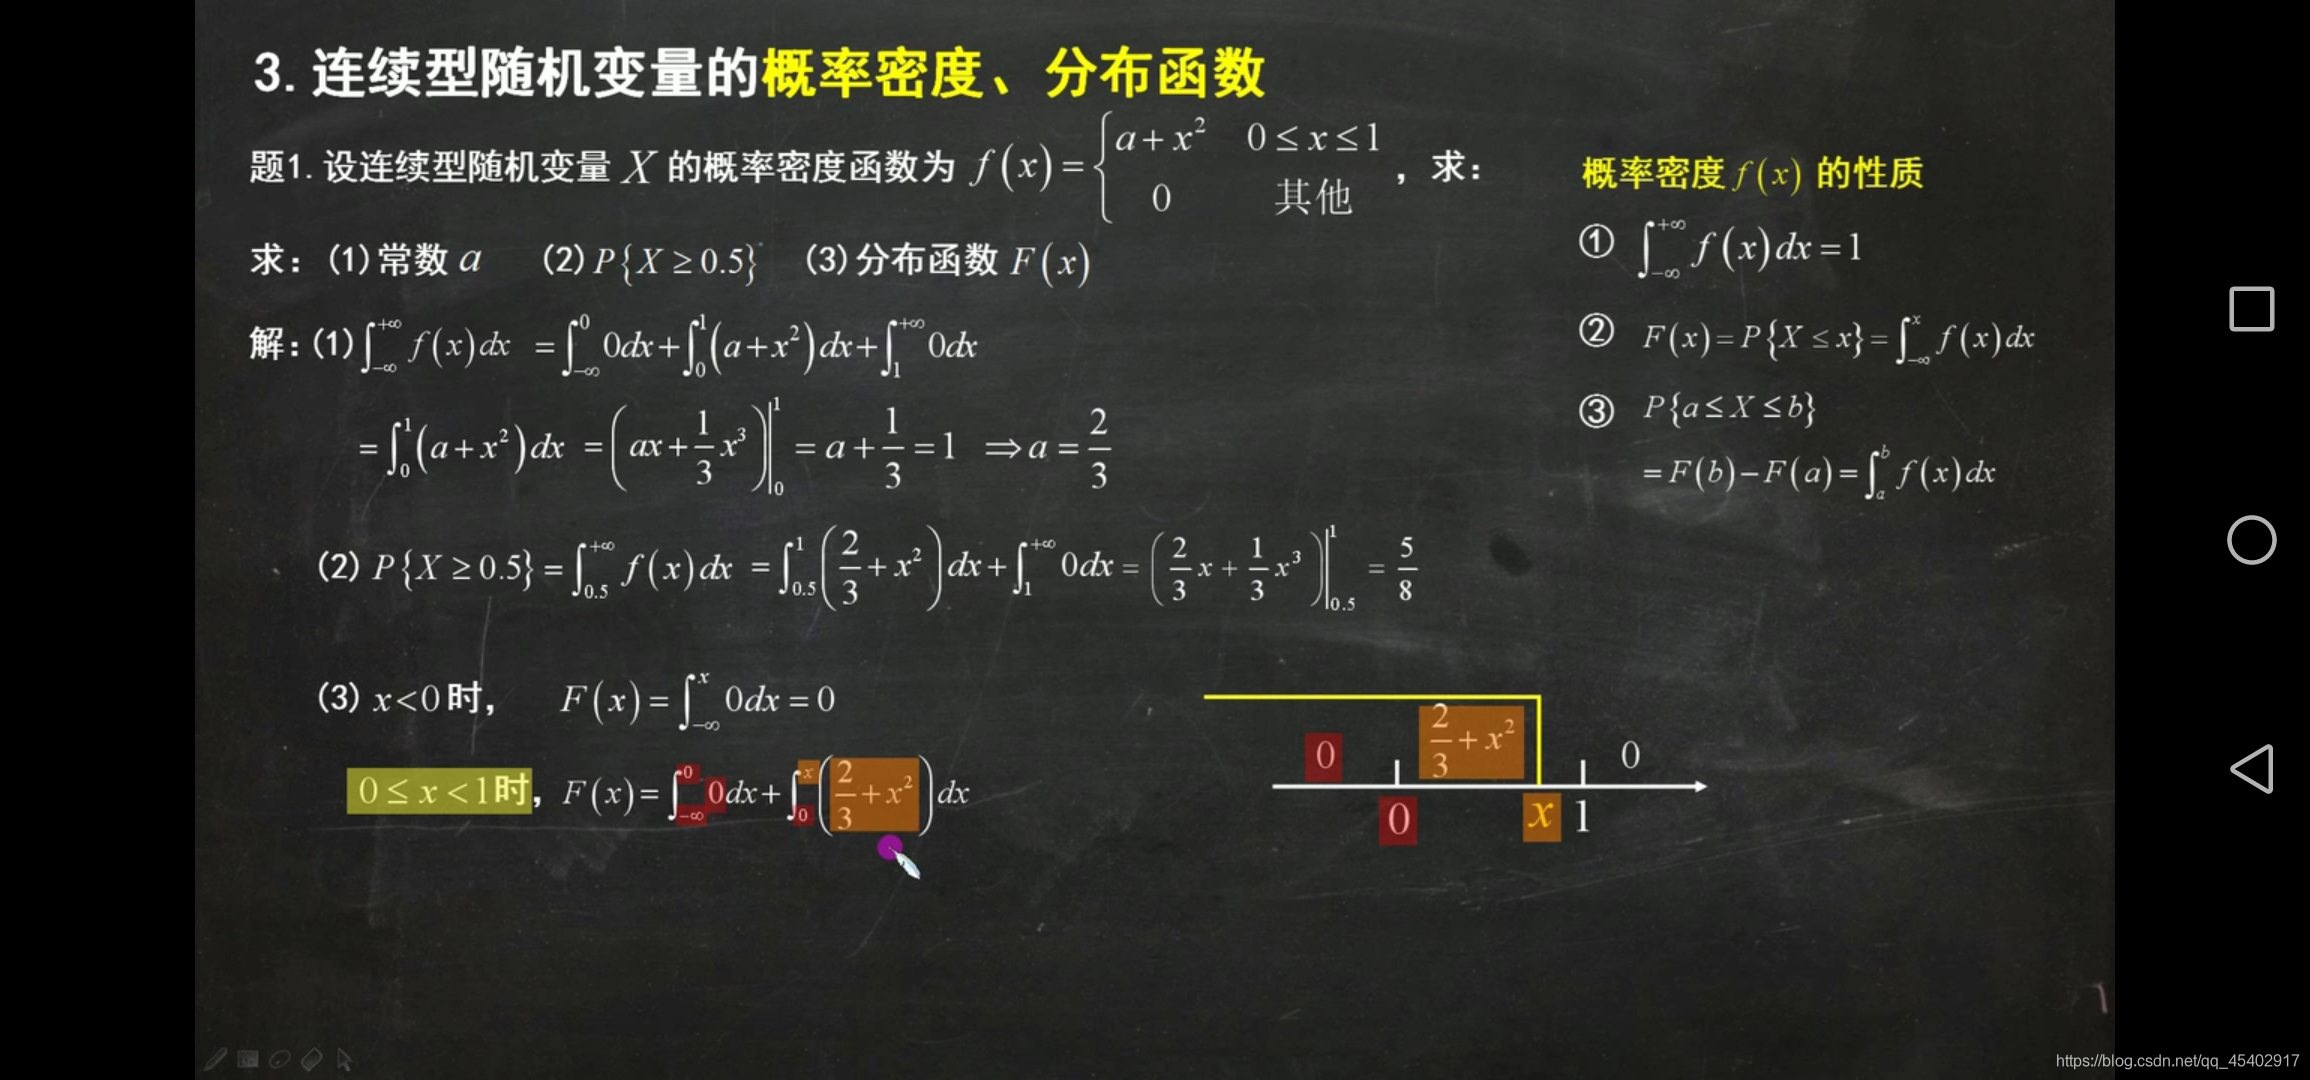 3. 连续型随机变量的概率密度、分布函数
题1. 设连续型随机变量 X 的概率密度函数为 f(x) = { a + x² 0 ≤ x ≤ 1
0 其他 ，求：
求：(1)常数 a (2) P{X ≥ 0.5} (3)分布函数 F(x)
解：(1) ∫_{-∞}^{+∞} f(x)dx = ∫_{-∞}^{0} 0dx + ∫_{0}^{1} (a + x²)dx + ∫_{1}^{+∞} 0dx
= ∫_{0}^{1} (a + x²)dx = (ax + 1/3 x³)|_{0}^{1} = a + 1/3 = 1 ⇒ a = 2/3
(2) P{X ≥ 0.5} = ∫_{0.5}^{+∞} f(x)dx = ∫_{0.5}^{1} (2/3 + x²)dx + ∫_{1}^{+∞} 0dx = (2/3 x + 1/3 x³)|_{0.5}^{1} = 5/8
(3) x<0时， F(x) = ∫_{-∞}^{x} 0dx = 0
0 ≤ x < 1时，F(x) = ∫_{-∞}^{0} 0dx + ∫_{0}^{x} (2/3 + x²)dx
概率密度 f(x) 的性质
① ∫_{-∞}^{+∞} f(x)dx = 1
② F(x) = P{X ≤ x} = ∫_{-∞}^{x} f(x)dx
③ P{a ≤ X ≤ b}
= F(b) − F(a) = ∫_{a}^{b} f(x)dx
0 2/3 + x² 0
0 x 1
https://blog.csdn.net/qq_45402917